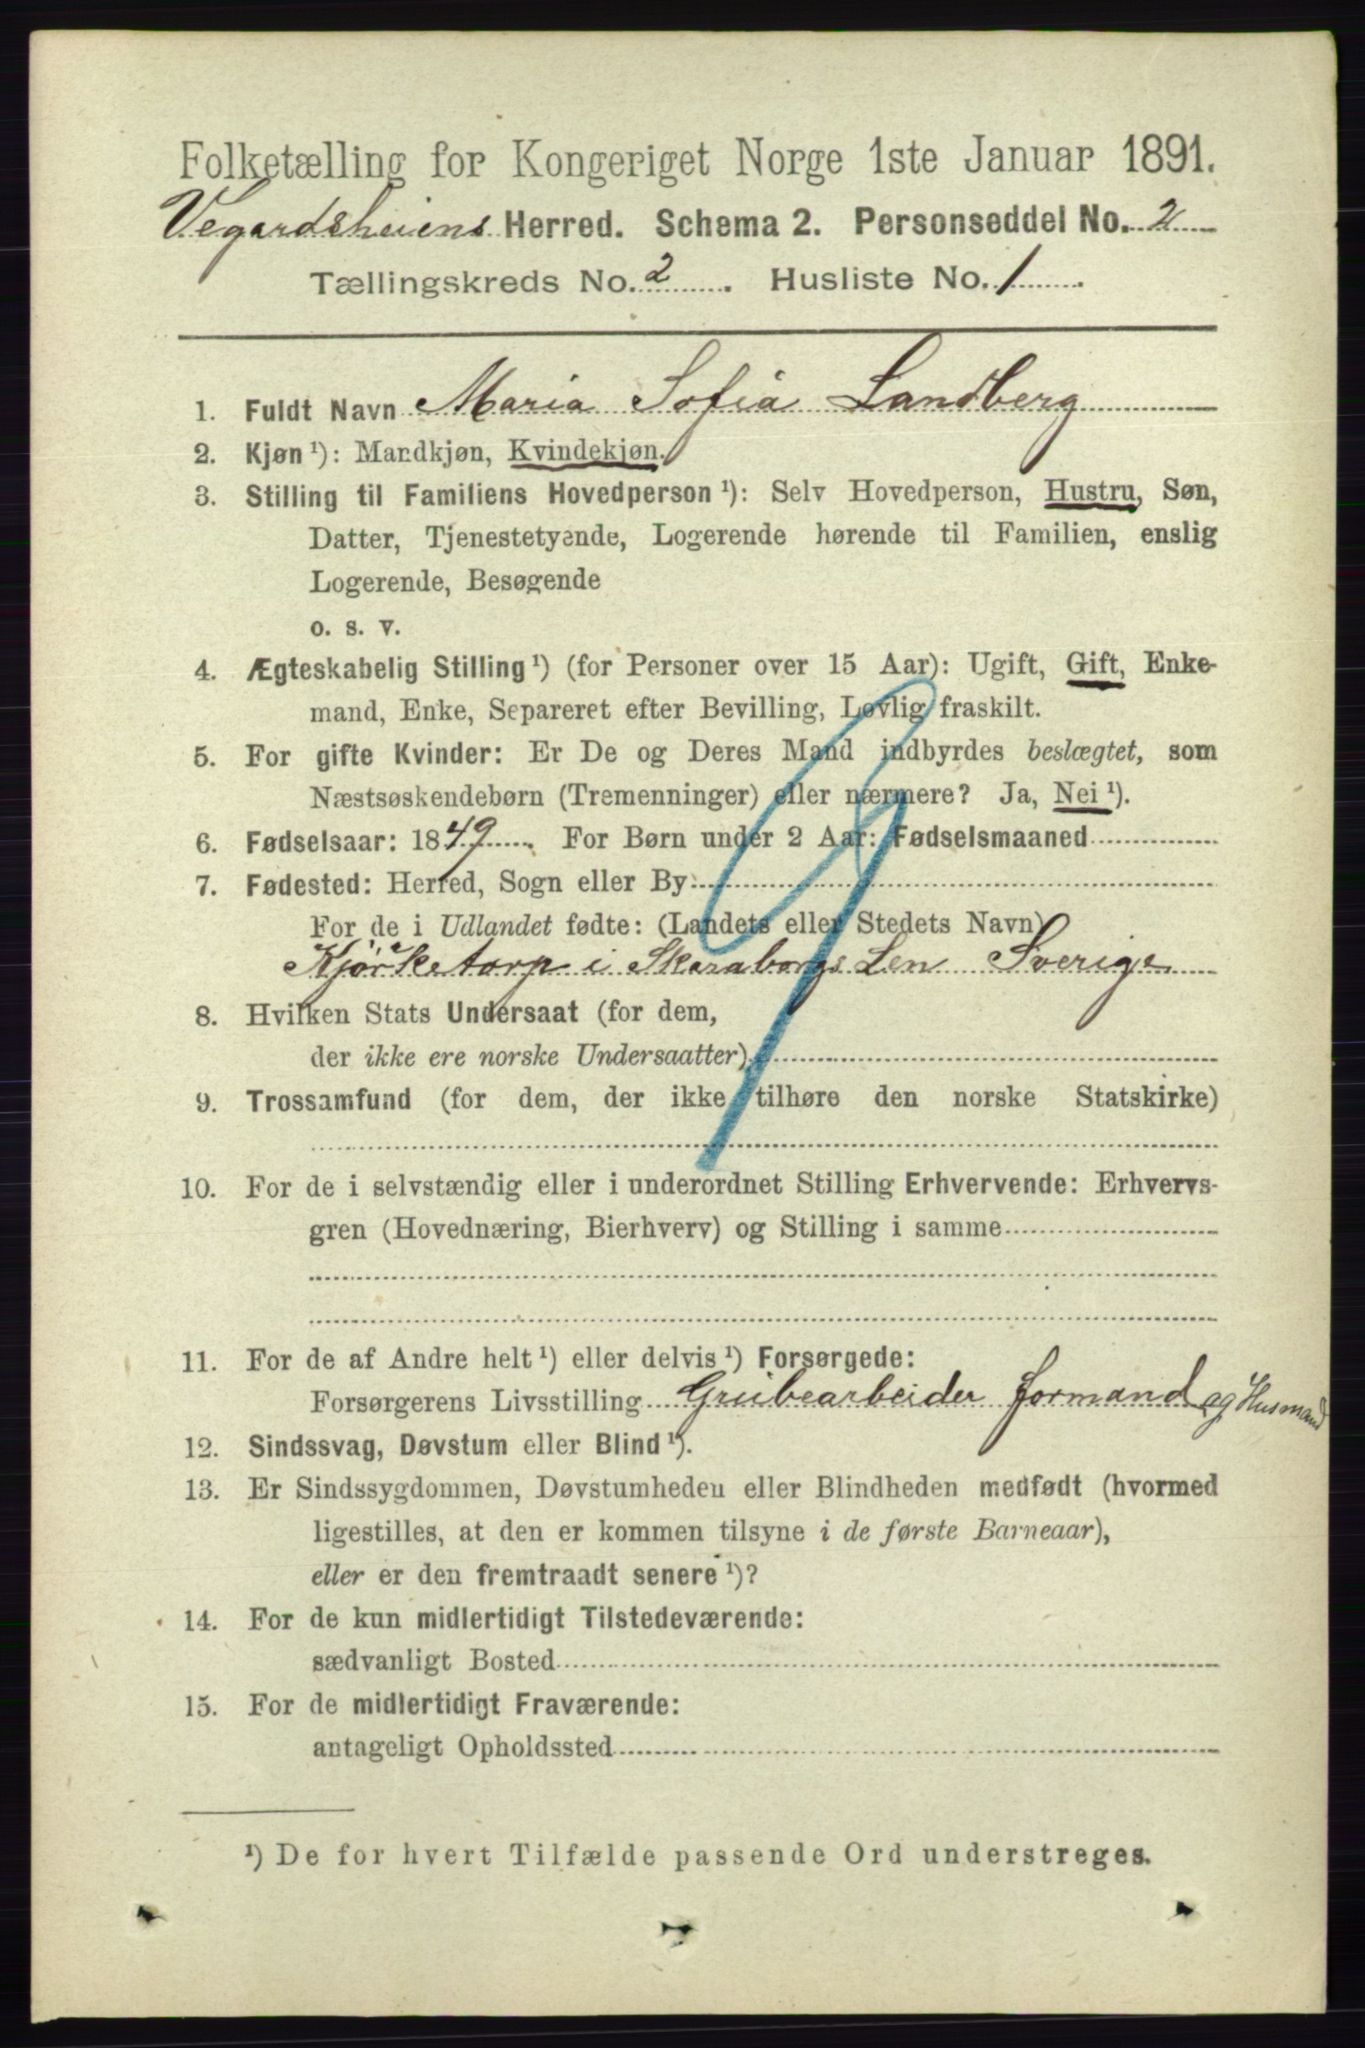 Folketælling for Kongeriget Norge 1ste Januar 1891.
Vegardsheiens Herred. Schema 2. Personseddel No. 2
Tællingskreds No. 2. Husliste No. 1.
1. Fuldt Navn Maria Sofia Landberg
2. Kjøn ¹): Mandkjøn, Kvindekjøn.
3. Stilling til Familiens Hovedperson ¹): Selv Hovedperson, Hustru, Søn,
Datter, Tjenestetyende, Logerende hørende til Familien, enslig
Logerende, Besøgende
o. s. v.
4. Ægteskabelig Stilling ¹) (for Personer over 15 Aar): Ugift, Gift, Enke-
mand, Enke, Separeret efter Bevilling, Lovlig fraskilt.
5. For gifte Kvinder: Er De og Deres Mand indbyrdes beslægtet, som
Næstsøskendebørn (Tremenninger) eller nærmere? Ja, Nei ¹).
6. Fødselsaar: 1849. For Børn under 2 Aar: Fødselsmaaned
7. Fødested: Herred, Sogn eller By
For de i Udlandet fødte: (Landets eller Stedets Navn)
Kjörketorp i Skaraborgs Len Sverige
8. Hvilken Stats Undersaat (for dem,
der ikke ere norske Undersaatter)
9. Trossamfund (for dem, der ikke tilhøre den norske Statskirke)
10. For de i selvstændig eller i underordnet Stilling Erhvervende: Erhvervs-
gren (Hovednæring, Bierhverv) og Stilling i samme
11. For de af Andre helt ¹) eller delvis ¹) Forsørgede:
Forsørgerens Livsstilling Grübearbeider formand og Husmand
12. Sindssvag, Døvstum eller Blind ¹).
13. Er Sindssygdommen, Døvstumheden eller Blindheden medfødt (hvormed
ligestilles, at den er kommen tilsyne i de første Barneaar),
eller er den fremtraadt senere ¹)?
14. For de kun midlertidigt Tilstedeværende:
sædvanligt Bosted
15. For de midlertidigt Fraværende:
antageligt Opholdssted
¹) De for hvert Tilfælde passende Ord understreges.